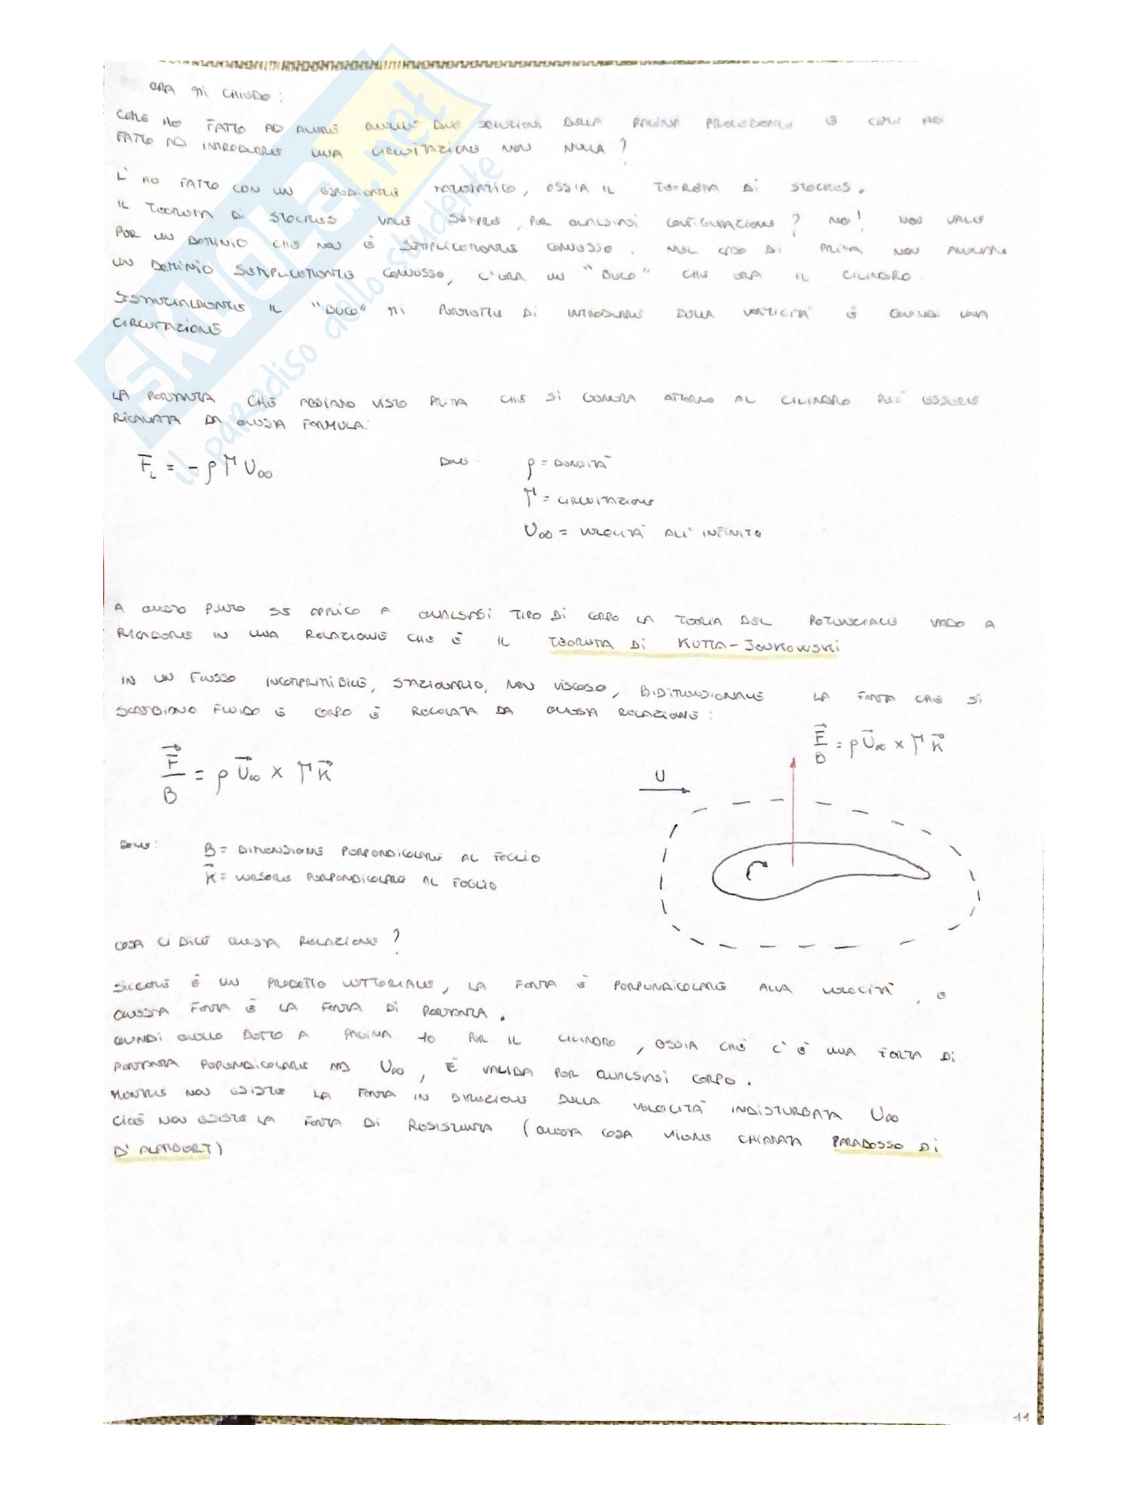 ORA MI CHIEDO:
COME HO FATTO AD AVERE QUELLE DUE SOLUZIONI DELLA PAGINA PRECEDENTE E COME HO
FATTO AD INTRODURRE UNA CIRCUITAZIONE NON NULLA?
L'HO FATTO CON UN ESPEDIENTE MATEMATICO, OSSIA IL TEOREMA DI STOCKES.
IL TEOREMA DI STOCKES VALE SEMPRE, PER QUALSIASI CONFIGURAZIONE? NO! NON VALE
PER UN DOMINIO CHE NON È SEMPLICEMENTE CONNESSO. NEL CASO DI PRIMA, NON AVEVAMO
UN DOMINIO SEMPLICEMENTE CONNESSO, C'ERA UN "BUCO" CHE ERA IL CILINDRO.
SOSTANZIALMENTE IL "BUCO" MI PERMETTE DI INTRODURRE DELLA VORTICITÀ E QUINDI UNA
CIRCUITAZIONE
LA PORTANZA CHE ABBIAMO VISTO PRIMA CHE SI GENERA ATTORNO AL CILINDRO PUÒ ESSERE
RICAVATA DA QUESTA FORMULA:
F_L = - ρ Γ U∞
DOVE: ρ = DENSITÀ
Γ = CIRCUITAZIONE
U∞ = VELOCITÀ ALL'INFINITO
A QUESTO PUNTO SE APPLICO A QUALSIASI TIPO DI CORPO LA TEORIA DEL POTENZIALE VADO A
RICADERE IN UNA RELAZIONE CHE È IL TEOREMA DI KUTTA-JOUKOWSKI
IN UN FLUSSO INCOMPRIMIBILE, STAZIONARIO, NON VISCOSO, BIDIMENSIONALE LA FORZA CHE SI
SCAMBIANO FLUIDO E CORPO È REGOLATA DA QUESTA RELAZIONE:
F⃗/B = ρ U⃗∞ × Γ K⃗
F⃗/B = ρ U⃗∞ × Γ K⃗
U
DOVE: B = DIMENSIONE PERPENDICOLARE AL FOGLIO
K⃗ = VERSORE PERPENDICOLARE AL FOGLIO
COSA CI DICE QUESTA RELAZIONE?
SICCOME È UN PRODOTTO VETTORIALE, LA FORZA È PERPENDICOLARE ALLA VELOCITÀ, E
QUESTA FORZA È LA FORZA DI PORTANZA.
QUINDI QUELLO DETTO A PAGINA 10 PER IL CILINDRO, OSSIA CHE C'È UNA FORZA DI
PORTANZA PERPENDICOLARE AD U∞, È VALIDA PER QUALSIASI CORPO.
MENTRE NON ESISTE LA FORZA IN DIREZIONE DELLA VELOCITÀ INDISTURBATA U∞
CIOÈ NON ESISTE LA FORZA DI RESISTENZA (QUESTA COSA VIENE CHIAMATA PARADOSSO DI
D'ALEMBERT)
11
SKUOLA.net
il paradiso dello studente